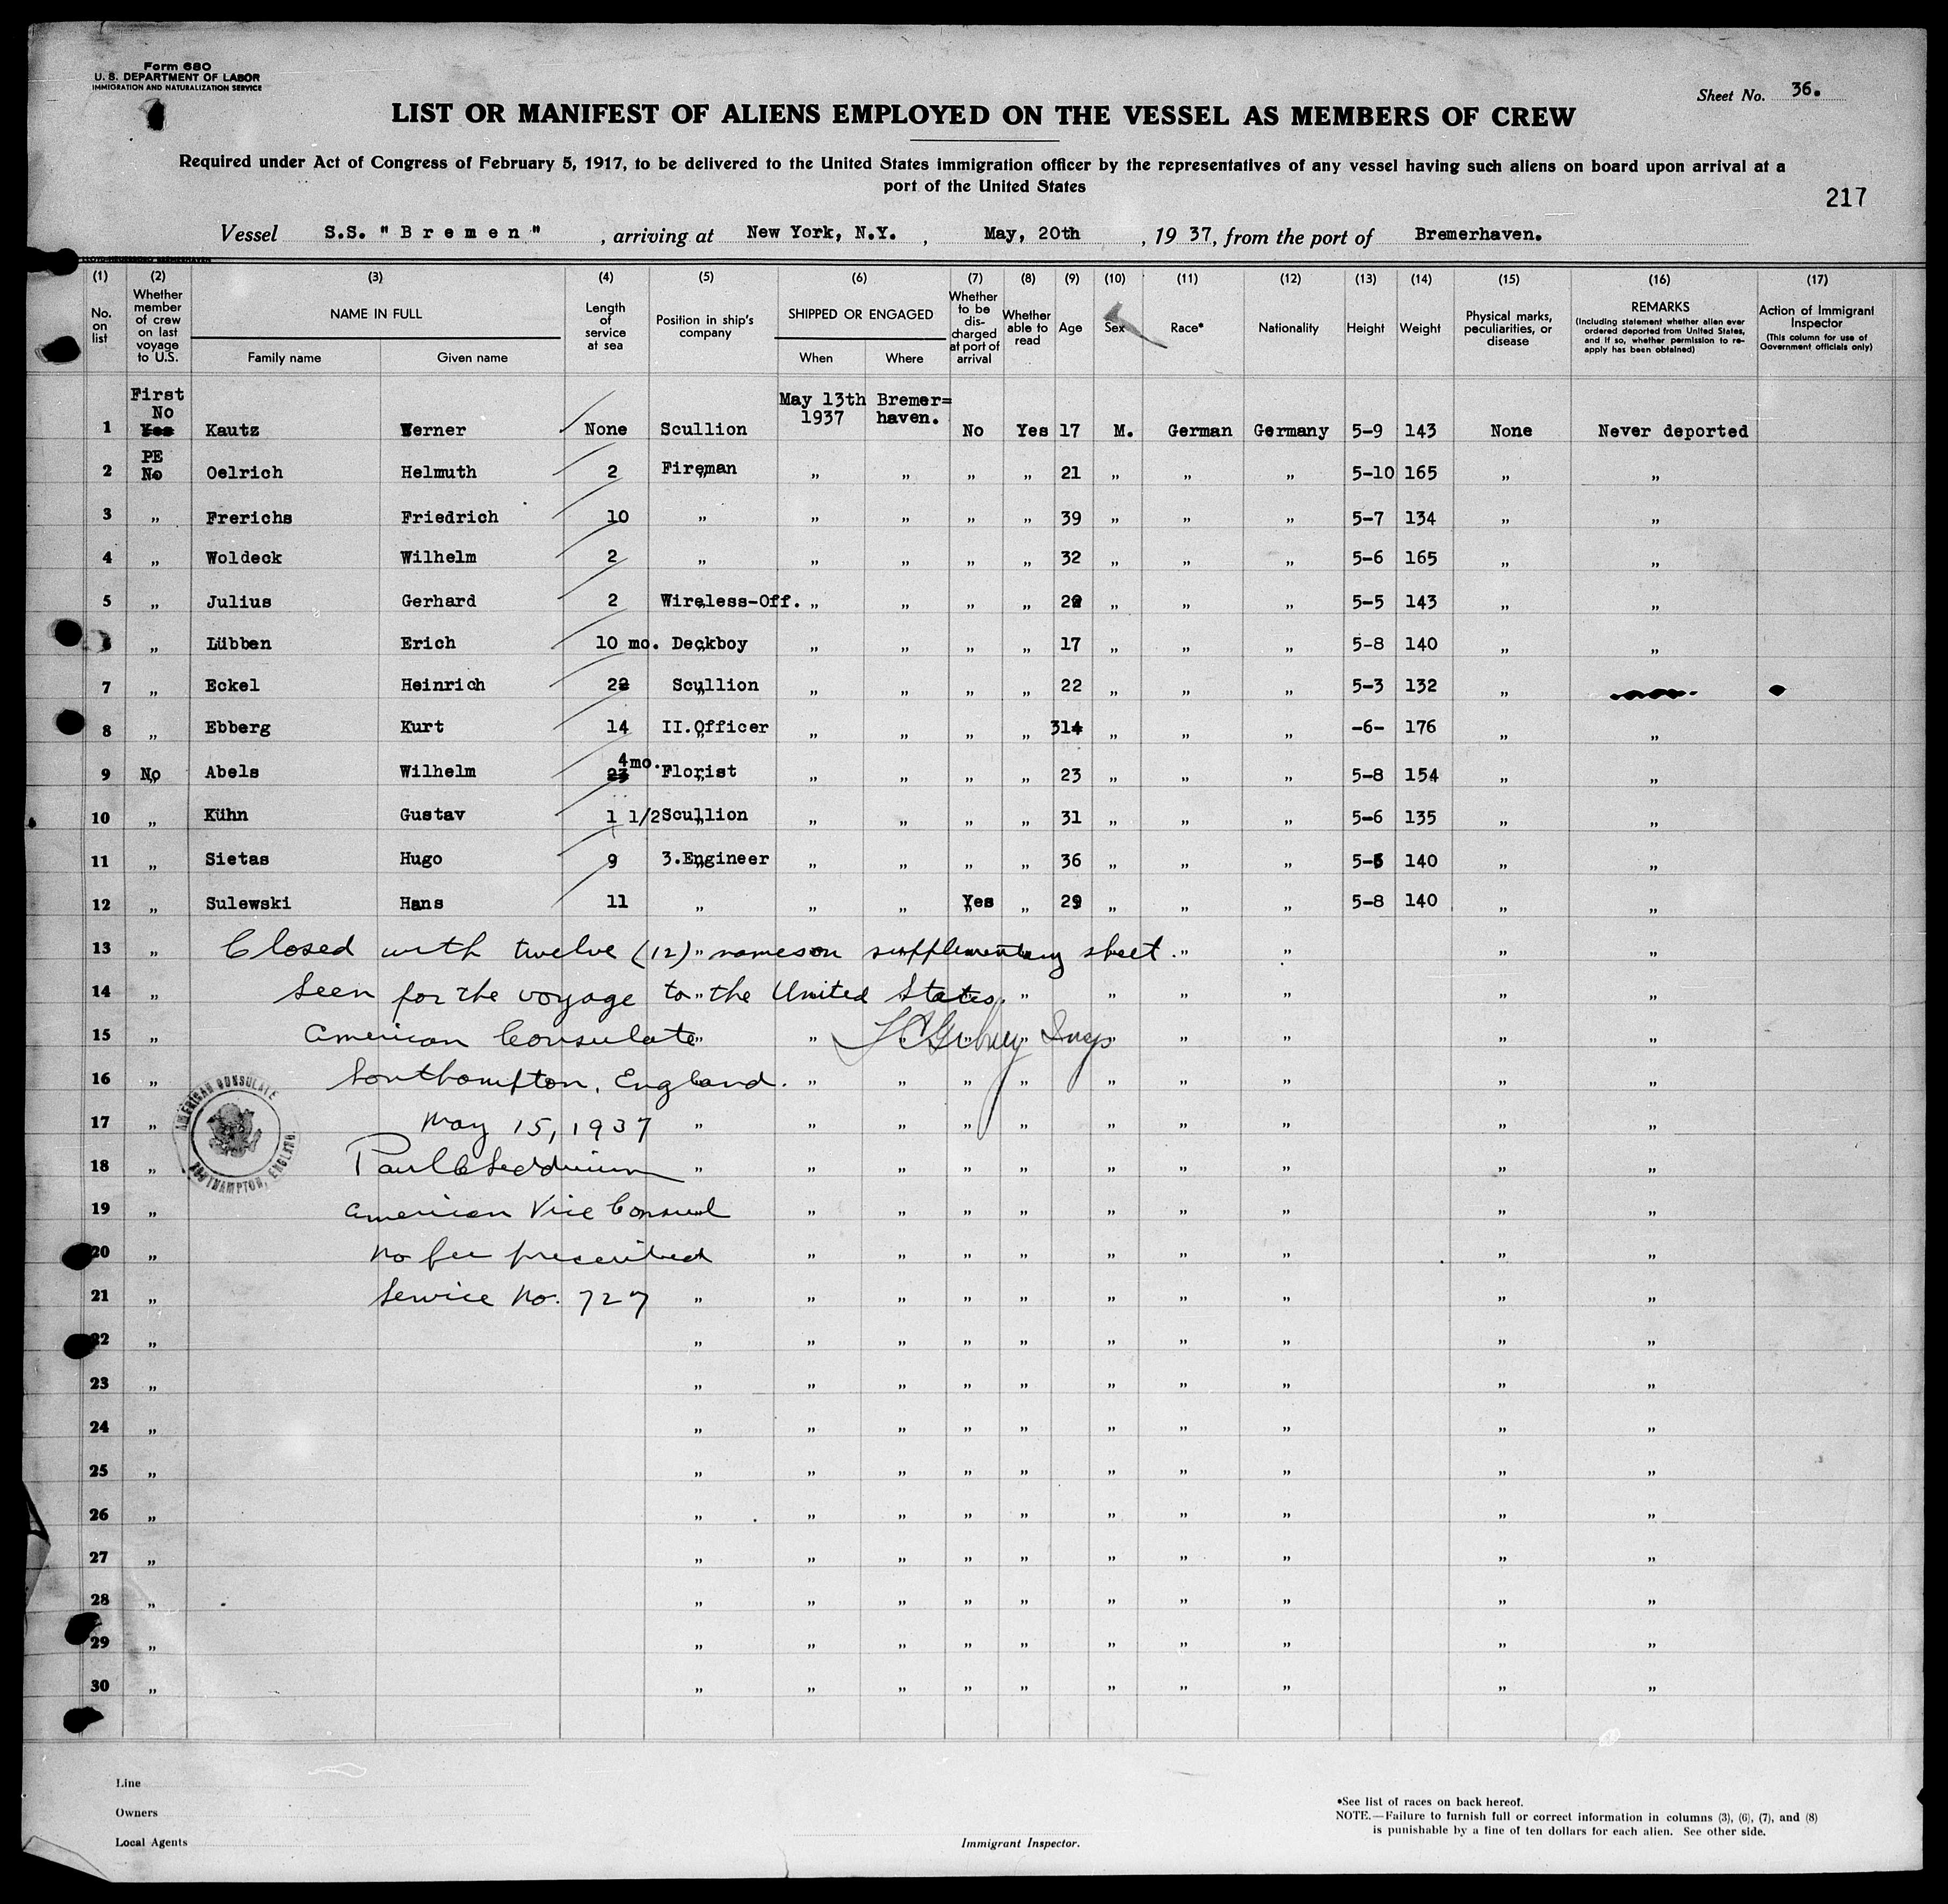 Form 680
U. S. DEPARTMENT OF LABOR
IMMIGRATION AND NATURALIZATION SERVICE
Sheet No. 36.
LIST OR MANIFEST OF ALIENS EMPLOYED ON THE VESSEL AS MEMBERS OF CREW
Required under Act of Congress of February 5, 1917, to be delivered to the United States immigration officer by the representatives of any vessel having such aliens on board upon arrival at a
port of the United States
217
Vessel S.S. "Bremen", arriving at New York, N.Y., May, 20th, 1937, from the port of Bremerhaven.
(1) (2) (3) (4) (5) (6) (7) (8) (9) (10) (11) (12) (13) (14) (15) (16) (17)
No. on list Whether member of crew on last voyage to U.S. NAME IN FULL Family name Given name Length of service at sea Position in ship's company SHIPPED OR ENGAGED When Where Whether to be discharged at port of arrival Whether able to read Age Sex Race* Nationality Height Weight Physical marks, peculiarities, or disease REMARKS (Including statement whether alien ever ordered deported from United States, and if so, whether permission to reapply has been obtained) Action of Immigrant Inspector (This column for use of Government officials only)
First
No
1 Yes Kautz Werner None Scullion May 13th 1937 Bremer=haven. No Yes 17 M. German Germany 5-9 143 None Never deported
PE
2 No Oelrich Helmuth 2 Fireman „ „ „ „ 21 „ „ „ 5-10 165 „ „
3 „ Frerichs Friedrich 10 „ „ „ „ „ 39 „ „ „ 5-7 134 „ „
4 „ Woldeck Wilhelm 2 „ „ „ „ „ 32 „ „ „ 5-6 165 „ „
5 „ Julius Gerhard 2 Wireless-Off. „ „ „ „ „ „ „ 5-5 143 „ „
6 „ Lübben Erich 10 mo. Deckboy „ „ „ „ 17 „ „ „ 5-8 140 „ „
7 „ Eckel Heinrich Scullion „ „ „ „ 22 „ „ „ 5-3 132 „
8 „ Ebberg Kurt 14 II.Officer „ „ „ „ 31 „ „ „ -6- 176 „ „
9 No Abels Wilhelm 4mo. Florist „ „ „ „ 23 „ „ „ 5-8 154 „ „
10 „ Kühn Gustav 1 1/2 Scullion „ „ „ „ 31 „ „ „ 5-6 135 „ „
11 „ Sietas Hugo 9 3.Engineer „ „ „ „ 36 „ „ „ 5-6 140 „ „
12 „ Sulewski Hans 11 „ „ „ Yes „ 29 „ „ „ 5-8 140 „ „
13 „ Closed with twelve (12) names on supplementary sheet. „ „ „ „
14 „ Seen for the voyage to the United States. „ „ „ „ „ „
15 „ American Consulate „ „ „ „ „ „
16 „ Southampton, England. „ „ „ „ „ „ „ „ „
17 „ May 15, 1937 „ „ „ „ „ „ „ „ „ „
AMERICAN CONSULATE
SOUTHAMPTON, ENGLAND
18 „ „ „ „ „ „ „ „ „ „ „
19 „ American Vice Consul „ „ „ „ „ „ „ „ „
20 „ No fee prescribed „ „ „ „ „ „ „ „ „
21 „ Service No. 727 „ „ „ „ „ „ „ „ „ „
22 „ „ „ „ „ „ „ „ „ „ „
23 „ „ „ „ „ „ „ „ „ „ „
24 „ „ „ „ „ „ „ „ „ „ „
25 „ „ „ „ „ „ „ „ „ „ „
26 „ „ „ „ „ „ „ „ „ „ „
27 „ „ „ „ „ „ „ „ „ „ „
28 „ „ „ „ „ „ „ „ „ „ „
29 „ „ „ „ „ „ „ „ „ „ „
30 „ „ „ „ „ „ „ „ „ „ „
Line
Owners
Local Agents
Immigrant Inspector.
*See list of races on back hereof.
NOTE.—Failure to furnish full or correct information in columns (3), (6), (7), and (8)
is punishable by a fine of ten dollars for each alien. See other side.